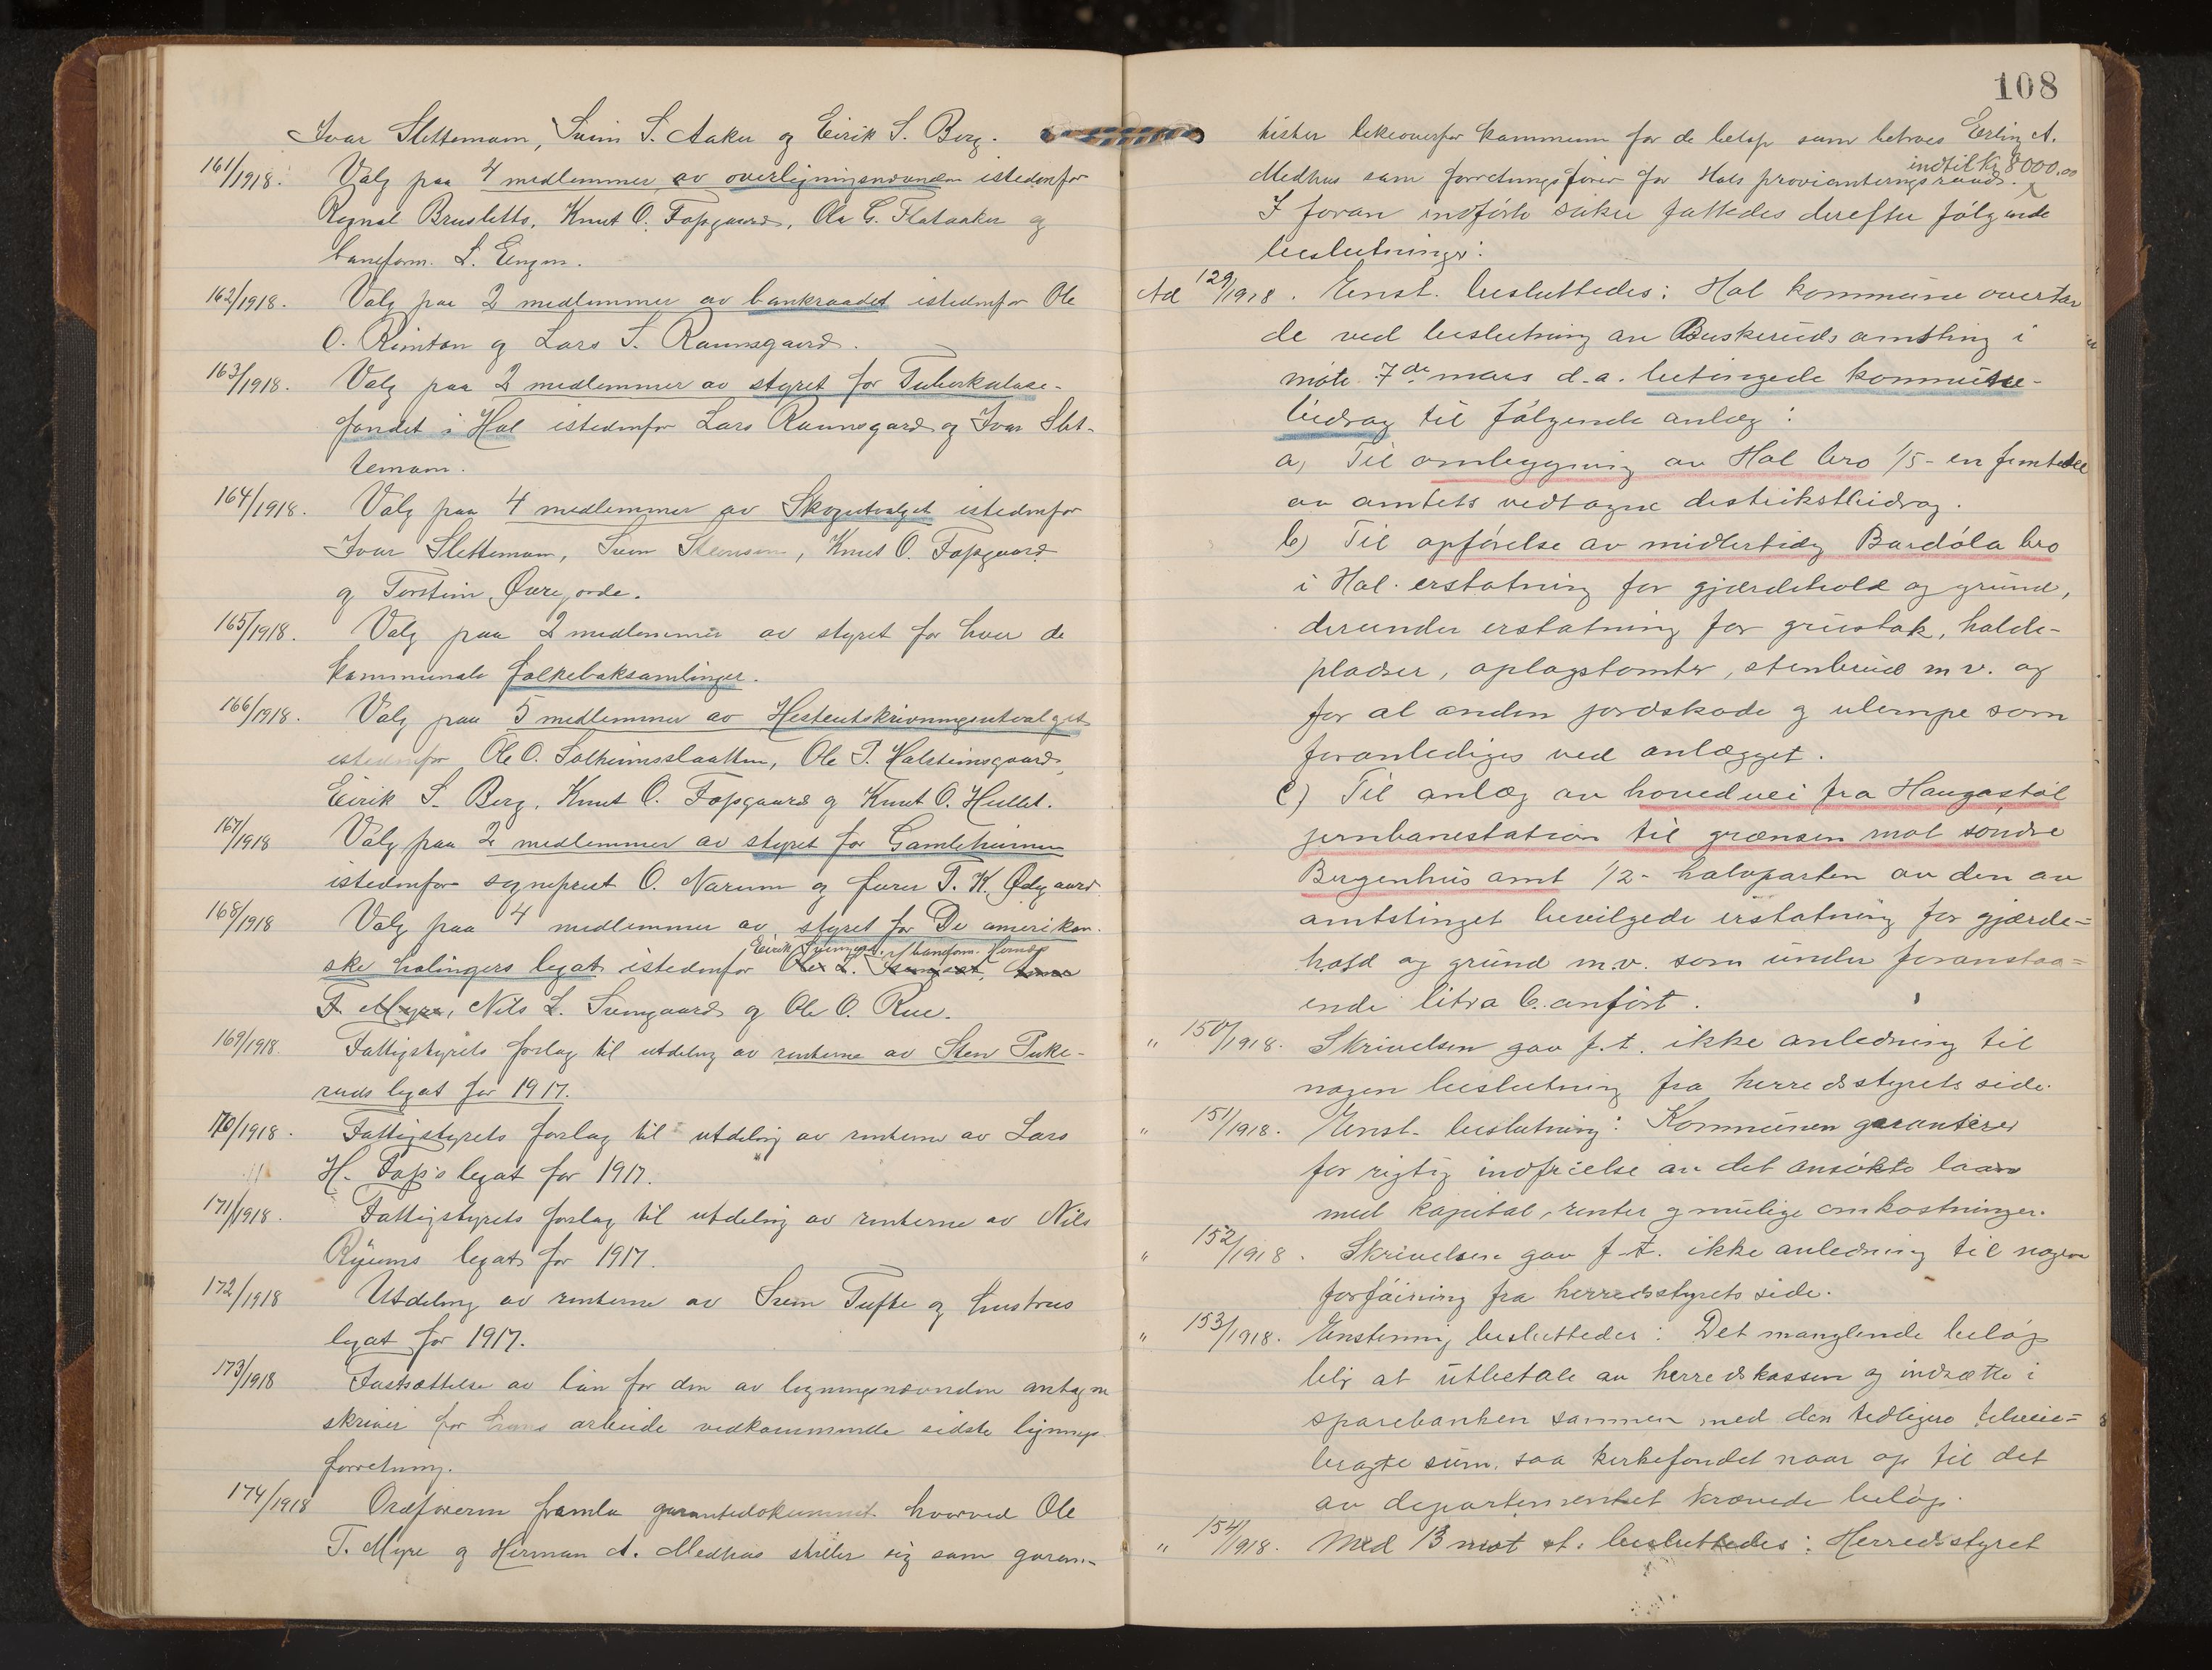 Ivar Slettemoen, Svein S. Aaker og Eirik S. Berg.
161/1918. Valg paa 4 medlemmer av overligningsnævnden istedenfor
Ragnal Brusletto, Knut O. Fopsgaard, Ola G. Flataaker og
baneform. L. Engen.
162/1918. Valg paa 2 medlemmer av bankraadet istedenfor Ole
O. Rimton og Lars S. Raunsgaard.
163/1918. Valg paa 2 medlemmer av styret for Tuberkulose-
fondet i Hol istedenfor Lars Raunsgaard og Ivar Slet-
temoen.
164/1918. Valg paa 4 medlemmer av Skogutvalget istedenfor
Ivar Slettemoen, Svein Steinsen, Knut O. Fopsgaard
og Torstein Øvrejorde.
165/1918. Valg paa 2 medlemmer av styret for hver de
kommunale folkeboksamlinger.
166/1918. Valg paa 5 medlemmer av Hesteutskrivningsutvalget
istedenfor Ole O. Solheimsslaatten, Ole P. Holsteinsgaard,
Eirik S. Berg, Knut O. Fopsgaard og Knut O. Hullet.
167/1918 Valg paa 2 medlemmer av styret for Gamleheimen
istedenfor sogneprest O. Narum og furer T. K. Ødegaard.
168/1918 Valg paa 4 medlemmer av styret for De amerikan-
Eirik Sveingard, banform. Homop
ske holingers legat istedenfor Ole L.
T. Myre, Nils L. Sveingaard og Ole O. Rue.
169/1918. Fattigstyrets forslag til utdeling av renterne av Sten Puke-
ruds legat for 1917.
170/1918. Fattigstyrets forslag til utdeling av renterne av Lars
H. Fop's legat for 1917.
171/1918. Fattigstyrets forslag til utdeling av renterne av Nils
Ryums legat for 1917.
172/1918 Utdeling av renterne av Svein Tufte og hustrus
legat for 1917.
173/1918 Fastsættelse av løn for den av ligningsnævnden antagne
skriver for hans arbeide vedkommende sidste lignings
forretning.
174/1918 Ordføreren framla garantidokument hvorved Ole
T. Myre og Herman A. Medhus stiller sig som garan-
108
tister likeoverfor kommunen for de beløp som betroes Erling A.
indtil kr 8000.00
Medhus som forretningsfører for Hols provianteringsraad.
I foran indførte saker fattedes derefter følgende
beslutninger:
Ad 129/1918. Enst. besluttedes: Hol kommune overtar
de ved beslutning av Buskeruds amtsting i
møte 7de mars d.a. betingede kommune-
bidrag til følgende anlæg:
a) Til omlægning av Hol bro 1/5 - en femtedel
av amtets vedtagne distriktsbidrag.
b) Til opførelse av midlertidig Bardøla bro
i Hol. erstatning for gjærdehold og grund,
derunder erstatning for grustak, halde-
pladser, oplagstomter, stenbrud m v. og
for al anden jordskade og ulempe som
foranlediges ved anlægget.
c) Til anlæg av hovedvei fra Haugastøl
jernbanestation til grænsen mot søndre
Bergenhus amt 1/2 - halvparten av den av
amtstinget bevilgede erstatning for gjærde=
hold og grund m.v. som under foranstaa=
ende litra b. anført.
" 150/1918. Skrivelsen gav f.t. ikke anledning til
nogen beslutning fra herredsstyrets side.
" 151/1918. Enst. beslutning: Kommunen garanterer
for rigtig indfrielse av det ansøkte laan
med kapital, renter og mulige omkostninger.
" 152/1918. Skrivelsen gav f.t. ikke anledning til nogen
forføining fra herredsstyrets side.
" 153/1918. Enstemmig besluttedes: Det manglende beløp
blir at utbetale av herredskassen og indsætte i
sparebanken sammen med den tidligere tilveie=
bragte sum, saa kirkefondet naar op til det
av departementet krævede beløp.
" 154/1918. Med 13 mot st. besluttedes: Herredsstyret